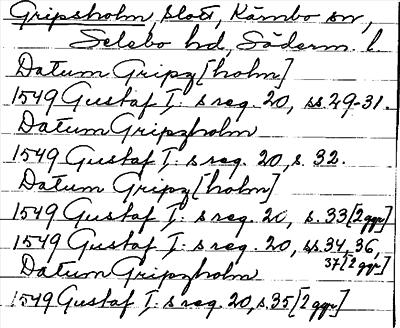 Gripsholm, slott, Kärnbo sn,
Selebo hd, Söderm. l.
Datum Gripz[holm]
1549 Gustaf I:s reg. 20, ss 29-31.
Datum Gripzholm
1549 Gustaf I:s reg. 20, s. 32.
Datum Gripz[holm]
1549 Gustaf I:s reg. 20, s. 33 [2 ggr]
1549 Gustaf I:s reg. 20, ss. 34, 36,
37 [2 ggr]
Datum Gripzholm
1549 Gustaf I:s reg. 20, s. 35 [2 ggr]